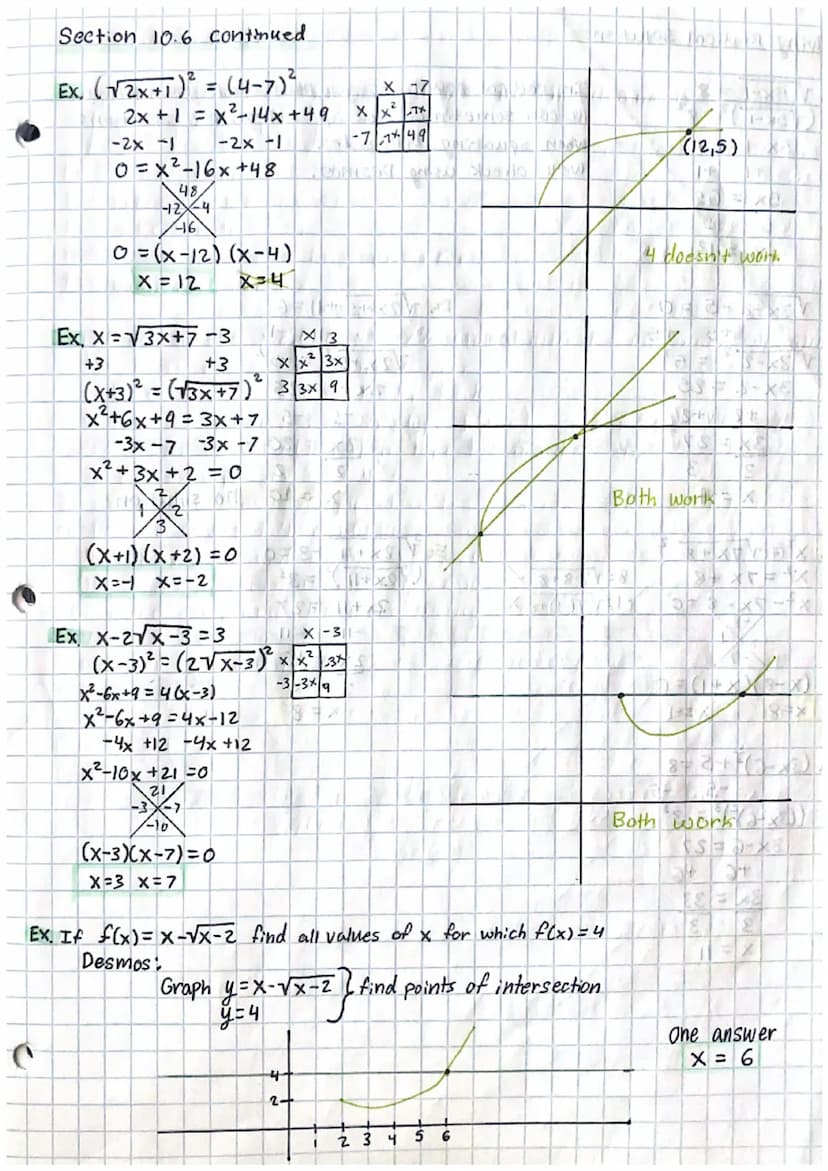 Section 10.6 continued
Ex. (√2x+1)² = (4-7)²
2x + 1 = x²-14x+49
-2x -1 -2x -1
0 = x²-16x+48
48
-12 -4
-16
0 = (x-12)(x-4)
x = 12 x=4
x -7
x x² -7x
-7 -7x 49
(12,5)
4 doesn't work
Ex. x = √3x+7 -3
+3 +3
(x+3)² = (√3x+7)²
x²+6x+9 = 3x+7
-3x -7 -3x -7
x²+3x+2 = 0
2
1 2
3
(x+1)(x+2) = 0
x=-1 x=-2
x 3
x x² 3x
3 3x 9
Both work
Ex. x-2√x-3 = 3
(x-3)² = (2√x-3)²
x²-6x+9 = 4(x-3)
x²-6x+9 = 4x-12
-4x +12 -4x +12
x²-10x+21 = 0
21
-3 -7
-10
(x-3)(x-7)=0
x=3 x=7
x -3
x x² -3x
-3 -3x 9
Both work
Ex. If f(x)= x-√x-2 find all values of x for which f(x)=4
Desmos:
Graph y=x-√x-2 } find points of intersection
y=4
4
2
1 2 3 4 5 6
One answer
x = 6